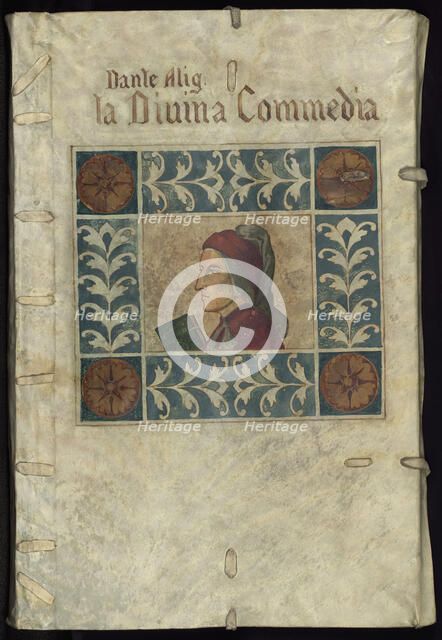 Dante Alig.
la Divina Commedia
Heritage Heritage
Heritage Heritage
©
Heritage Heritage
Heritage Heritage